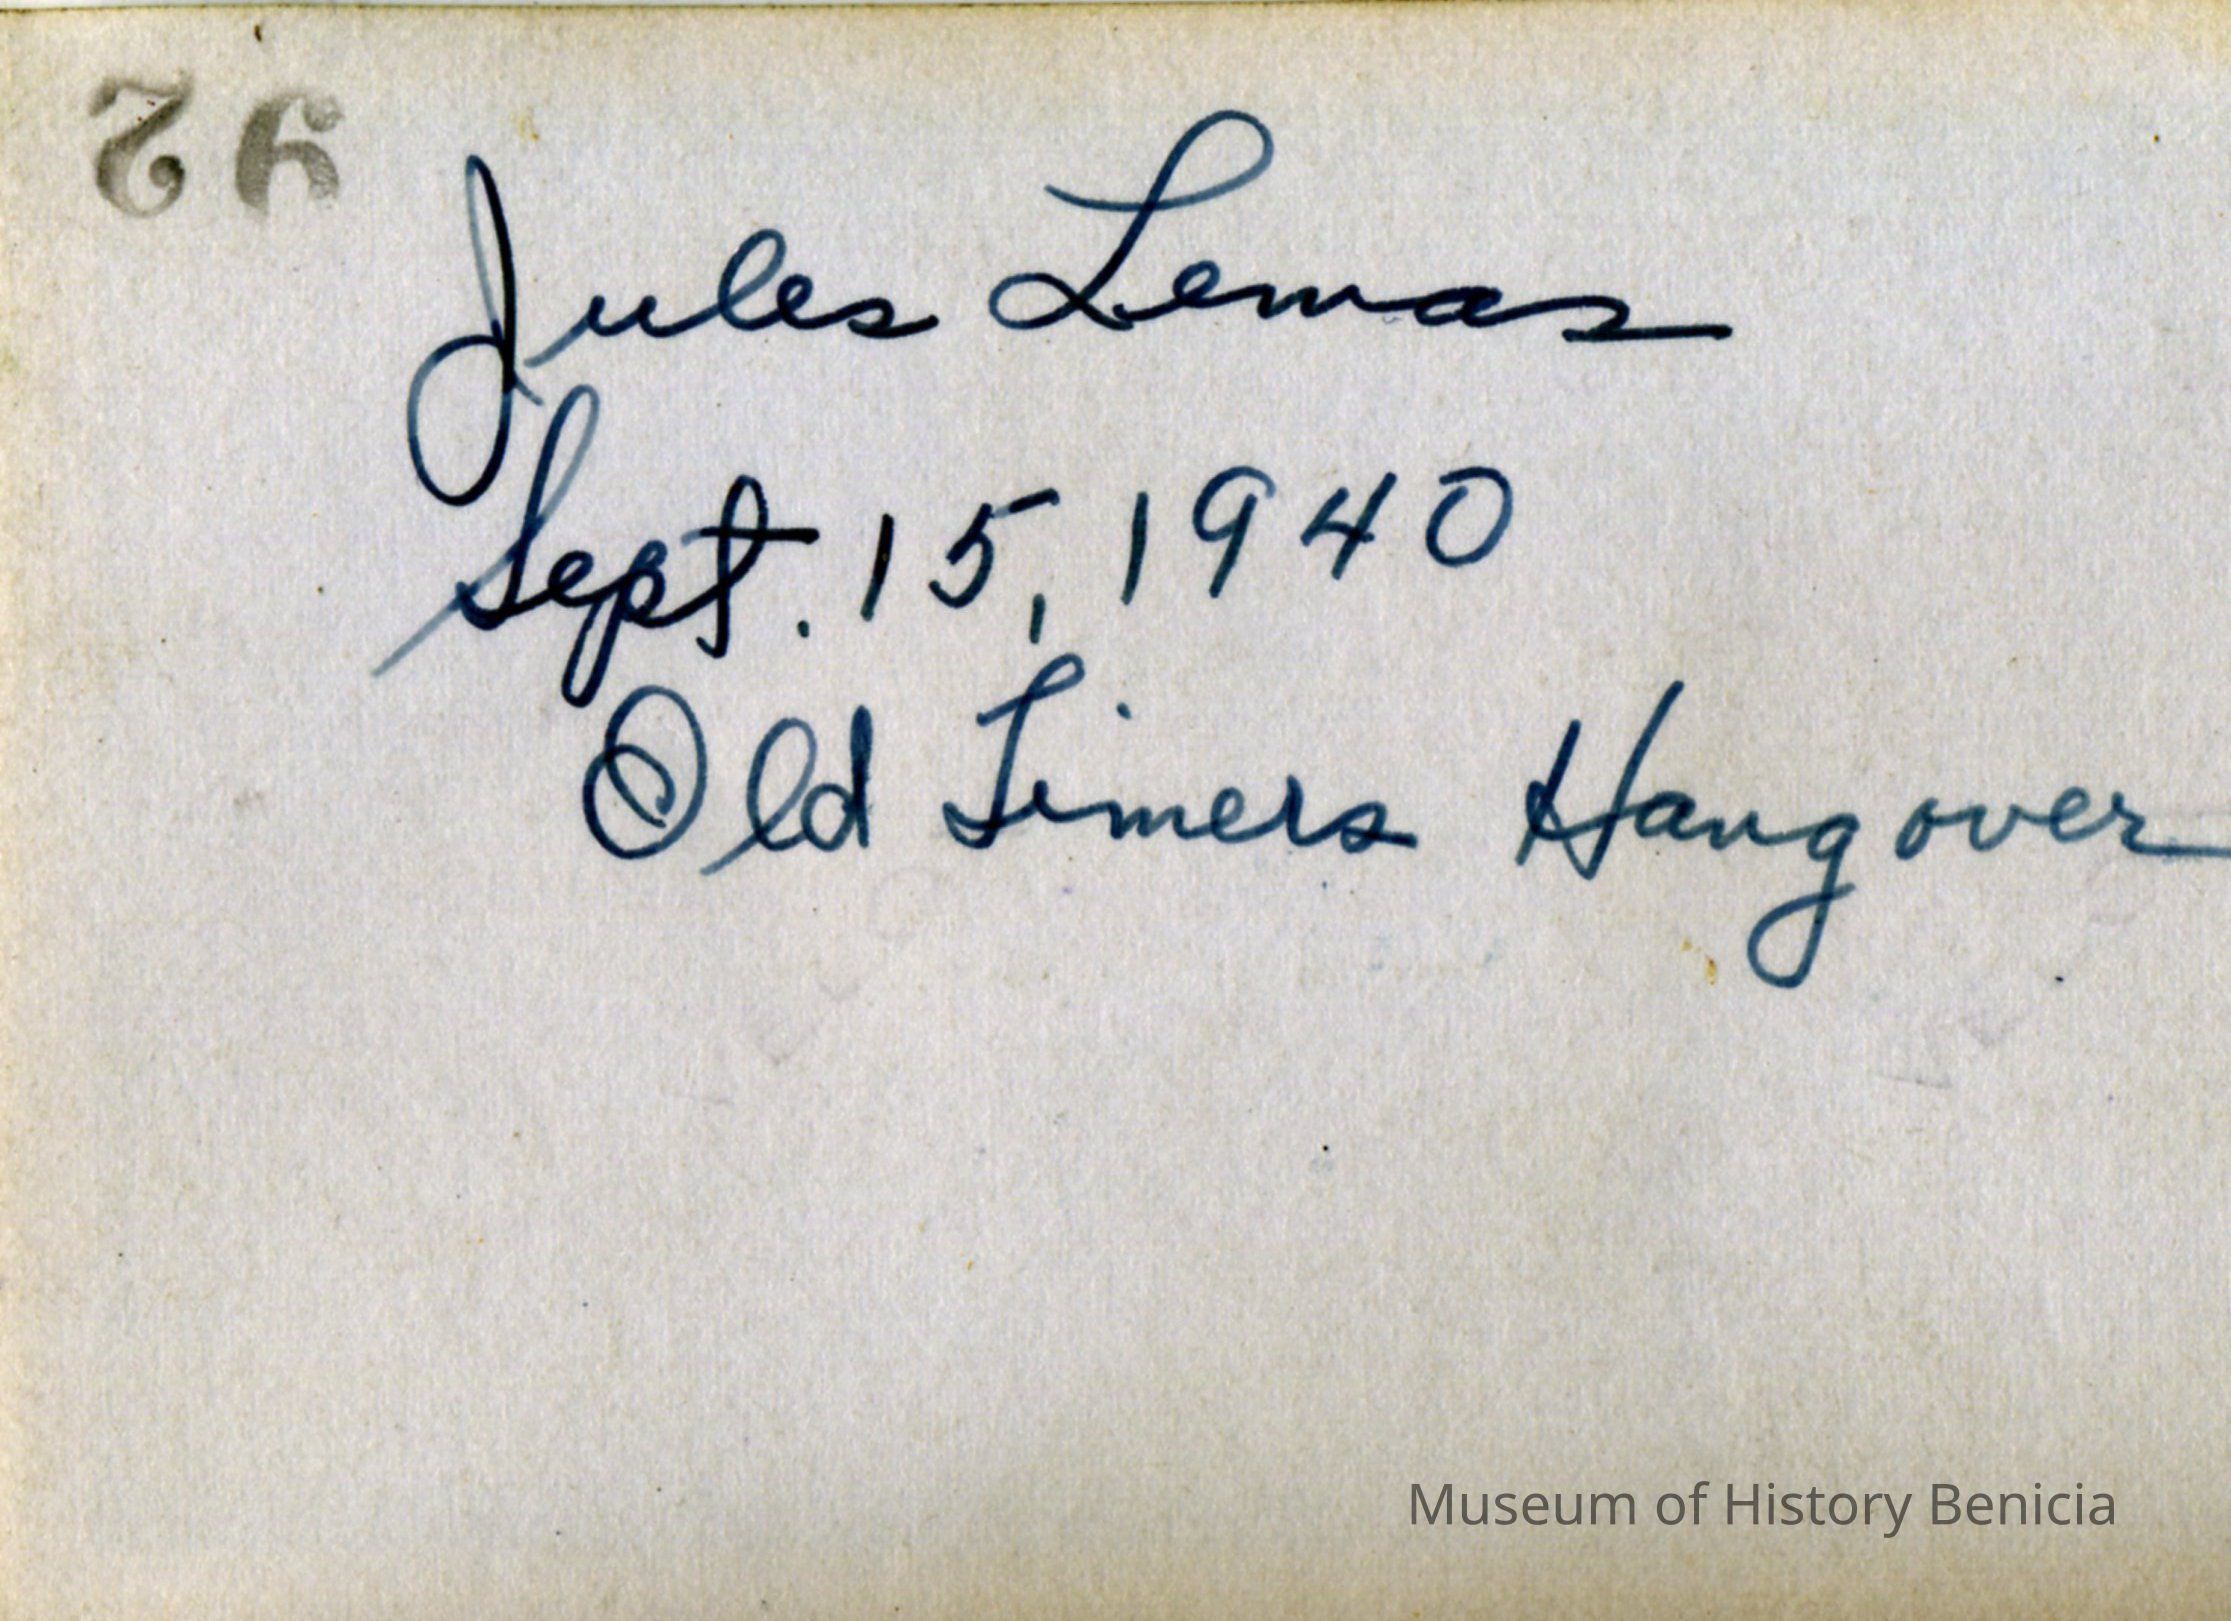 Jules Lemas
Sept. 15, 1940
Old Timers Hangover
Museum of History Benicia